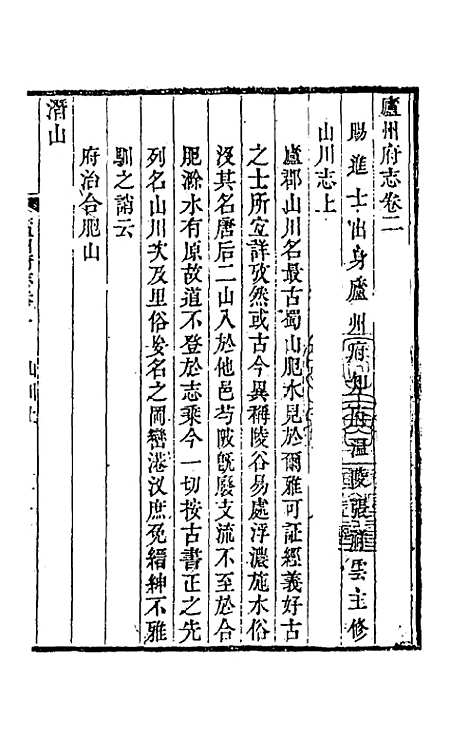 廬州府志卷二
賜進士出身廬州府知府溫陵張祥雲主修
山川志上
廬郡山川名最古蜀山肥水見於爾雅可証經義好古
之士所宜詳攷然或古今異稱陵谷易處浮濃施水俗
沒其名唐后二山入於他邑芍陂既廢支流不至於合
肥滁水有原故道不登於志乘今一切按古書正之先
列名山川次及里俗㕙名之岡巒港汊庶免縉紳不雅
馴之誚云
府治合肥山
潛山